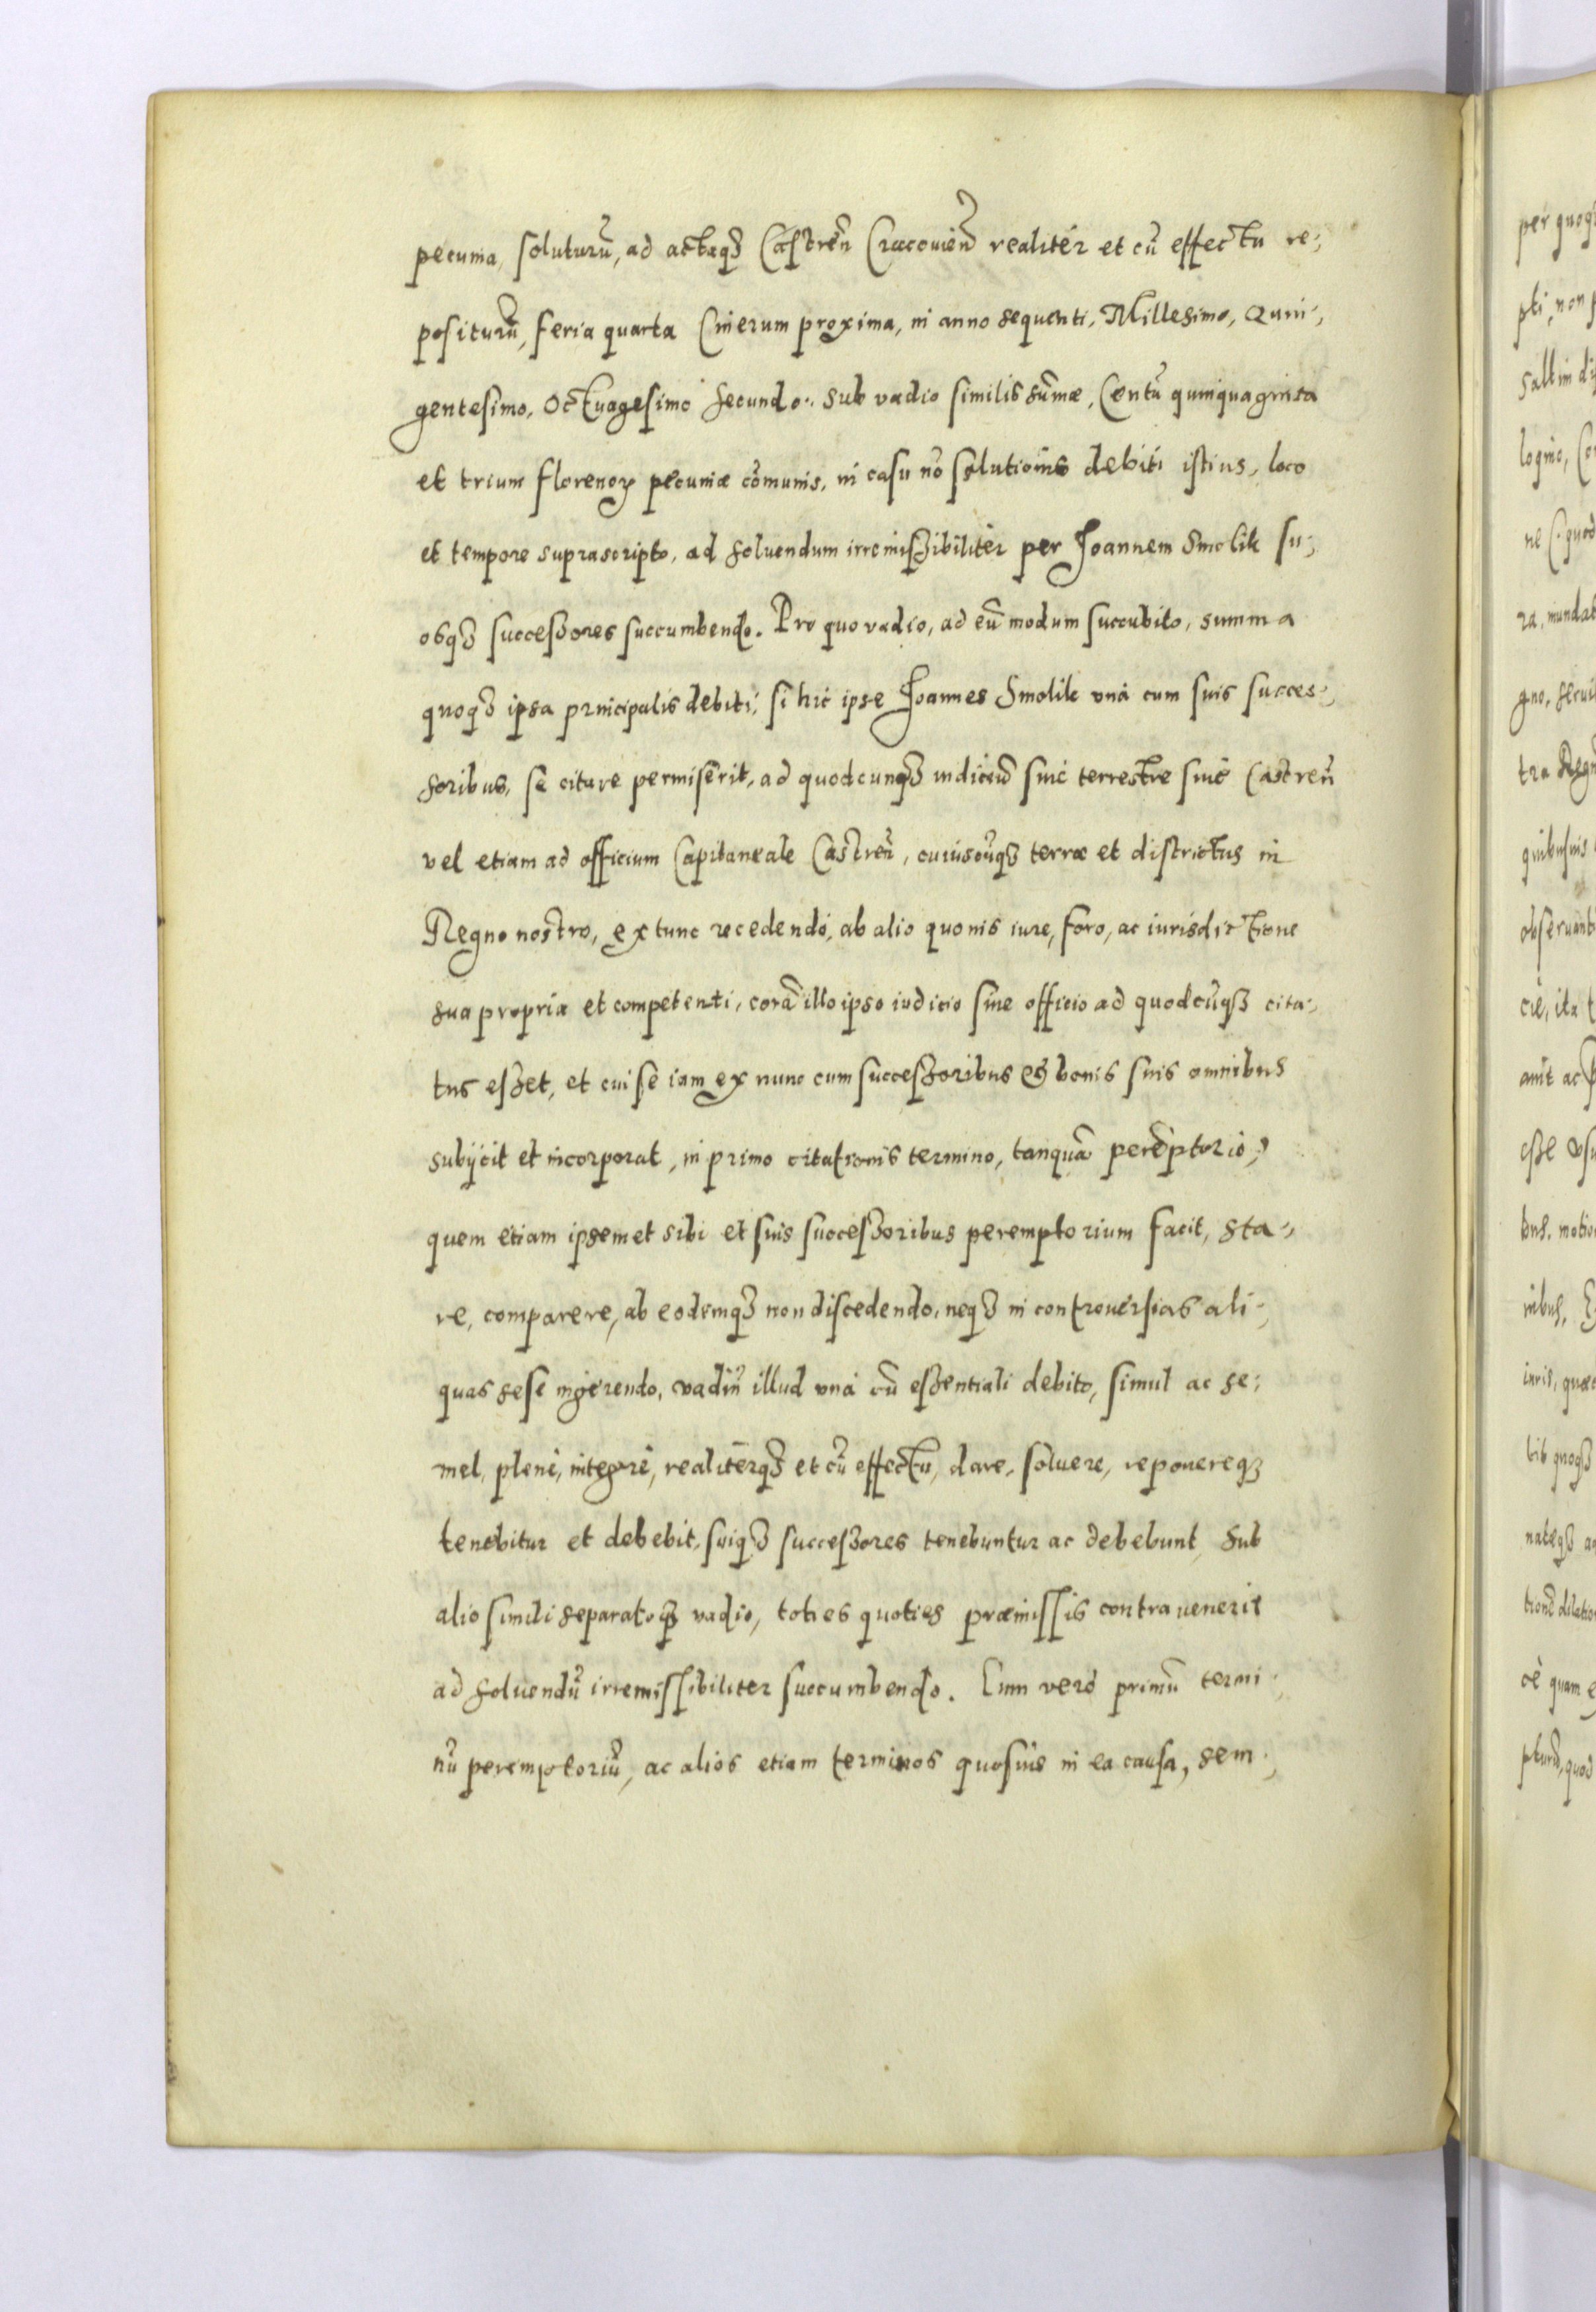 pecunia, soluturũ, ad actaqȝ Castreñ Cracouieñ realitér et cũ effectu re,
positurũ, feria quarta Cinerum proxima, in anno sequenti, Millesimo, Quin,
gentesimo, Octuagesimo secundo. Sub vadio similis sum̃æ, Centũ quinquaginta
et trium florenoꝝ pecuniæ com̃unis, in casu nõ solutionis debiti istius, loco
et tempore suprascripto, ad soluendum irremissibilitér per Joannem Smolik su,
osqȝ successores succumbendo. Pro quo vadio, ad eũ modum succubito, summa
quoqȝ ipsa principalis debiti, si hic ipse Joannes Smolik unà cum suis succes,
soribus, se citare permiserit, ad quodcunqȝ iudiciũ siue terrestre siue Castreñ
vel etiam ad officium Capitaneale Castreñ, cuiuscũqȝ terræ et districtus in
Regno nostro, ex tunc recedendo, ab alio quouis iure, foro, ac iurisdictione
sua propria et competenti, corã illo ipso iudicio siue officio ad quodcũqȝ cita,
tus esset, et cui se iam ex nunc cum successoribus & bonis suis omnibus
subijcit et incorporat, in primo citationis termino, tanquã perẽptorio,
quem etiam ipsemet sibi et suis successoribus peremptorium facit, sta,
re, comparere, ab eodemqȝ non discedendo, neqȝ in controuersias ali,
quas sese ingerendo, vadiũ illud unà cũ essentiali debito, simul ac se,
mel, plenè, integrè, realitérqȝ et cũ effectu, dare, soluere, reponereqȝ
tenebitur et debebit, suiqȝ successores tenebuntur ac debebunt, Sub
alio simili separatoqȝ vadio, toties quoties præmissis contrauenerit
ad soluendũ irremissibiliter succumbendo. Cum verò primũ termi,
nũ peremptoriũ, ac alios etiam terminos quosuis in ea causa, sem,